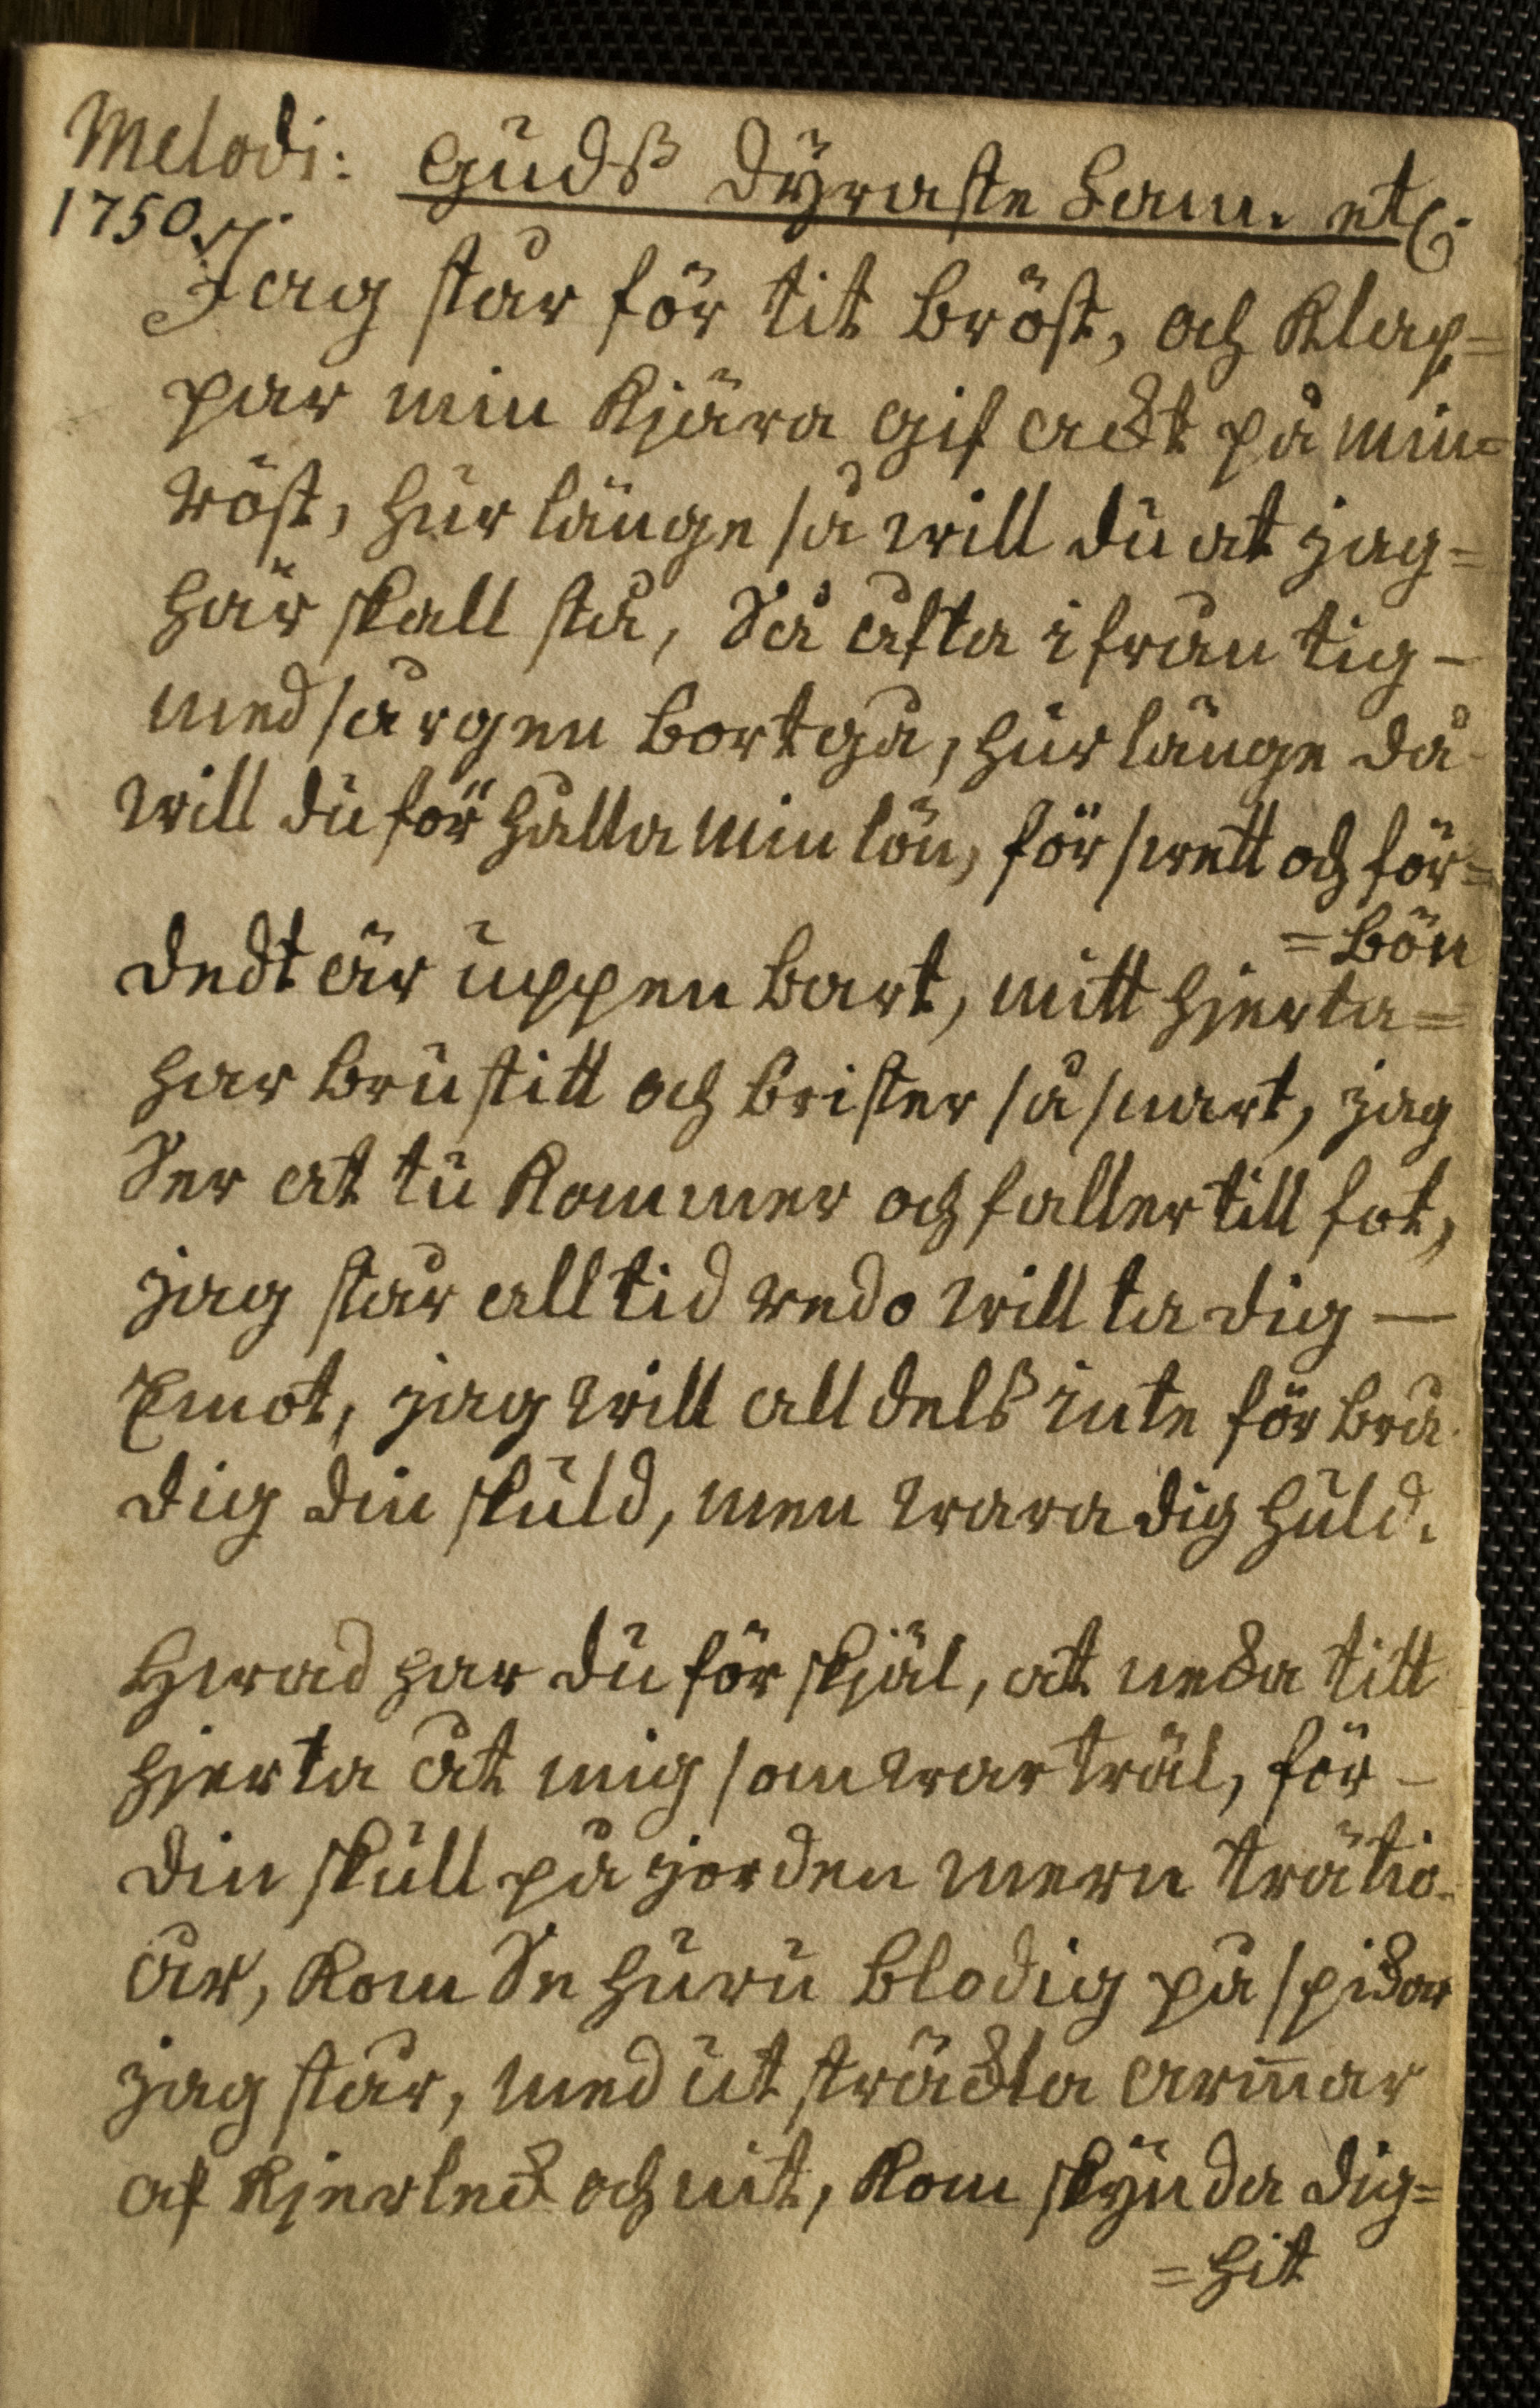 Melodi: Gudß dyraste Lam. etc.
1750.
Jag står för tit bröst, och klap=
par min kjära gif ackt på min=
röst, hur länge så will du at jag=
här skall stå, Så åfta ifrån tig -
med sårgen bortgå, hur länge då
will du för hålla min lön, för swett och för=
=bön
deckt är uppen bart, mitt hjerta=
har brustitt och brister så snart, jag
Ser at tu kommer och faller till fot,
jag står alltid redo will ta dig -
Emot, jag will alldelß inte för brå
dig din skuld, men wara dig huld.
Hwad har du för skjäl, at neka titt
hjerta åt mig som war träl, för -
din skull på jorden mern trätio
år, kom Se huru blodig på spikar
jag står, med ut sträckta armar
af kjerlek och nit, kom skynda dig=
=hit